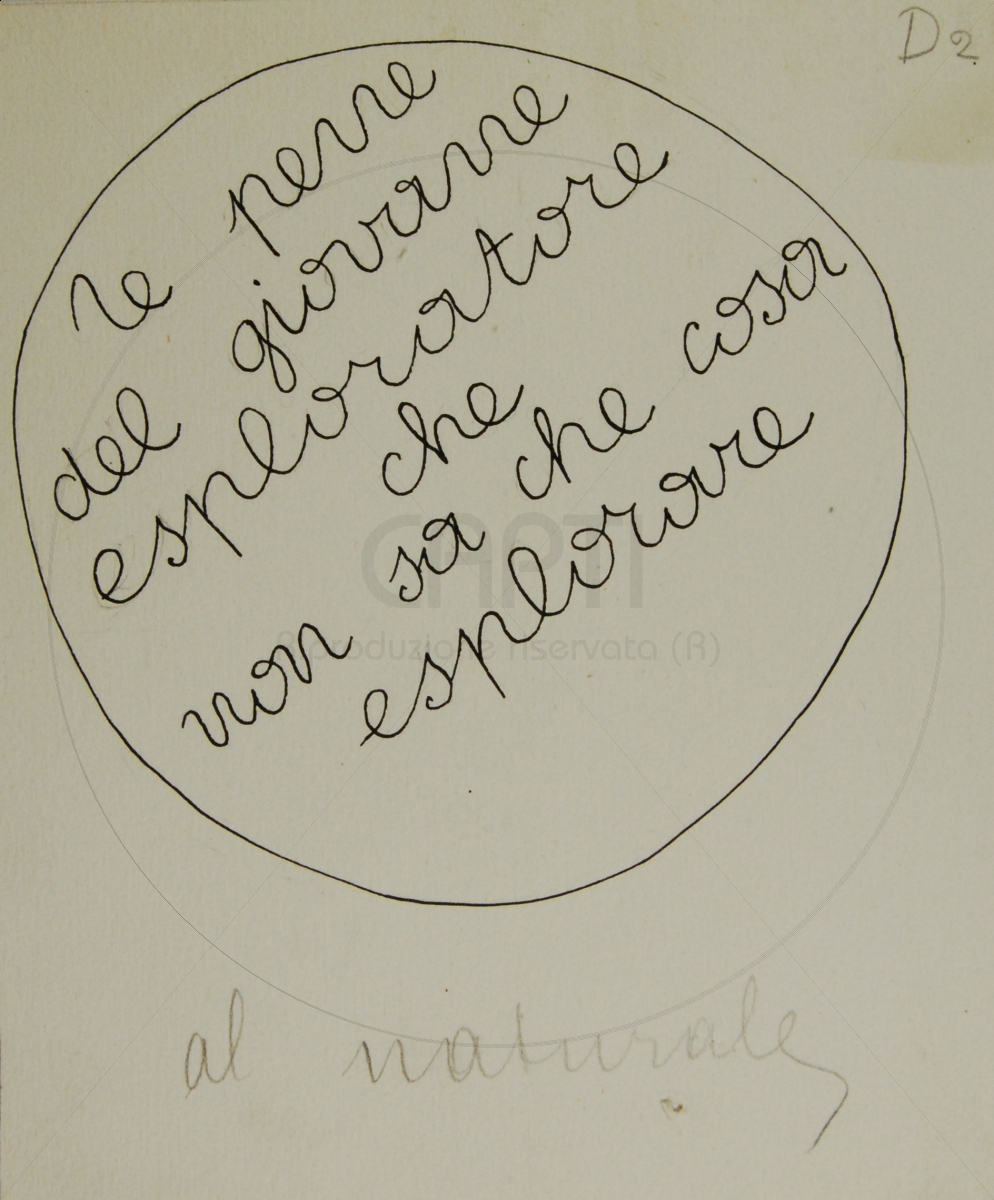 D2
le pene
del giovane
esploratore
che
non sa che cosa
esplorare
CAPTI
Riproduzione riservata (R)
al naturale